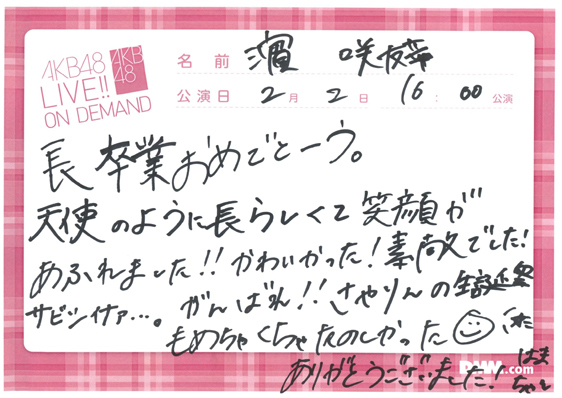 AKB48
LIVE!!
ON DEMAND
AKB
48
名前 濵 咲友菜
公演日 2月2日 16:00公演
長 卒業おめでとーう。
天使のように長らしくて笑顔が
あふれました!!かわいかった!素敵でした!
サビシイナァ…。がんばれ!!さやりんの生誕祭
もめちゃくちゃたのしかった
ありがとうございました!
はま
ちゃん
DMM.com